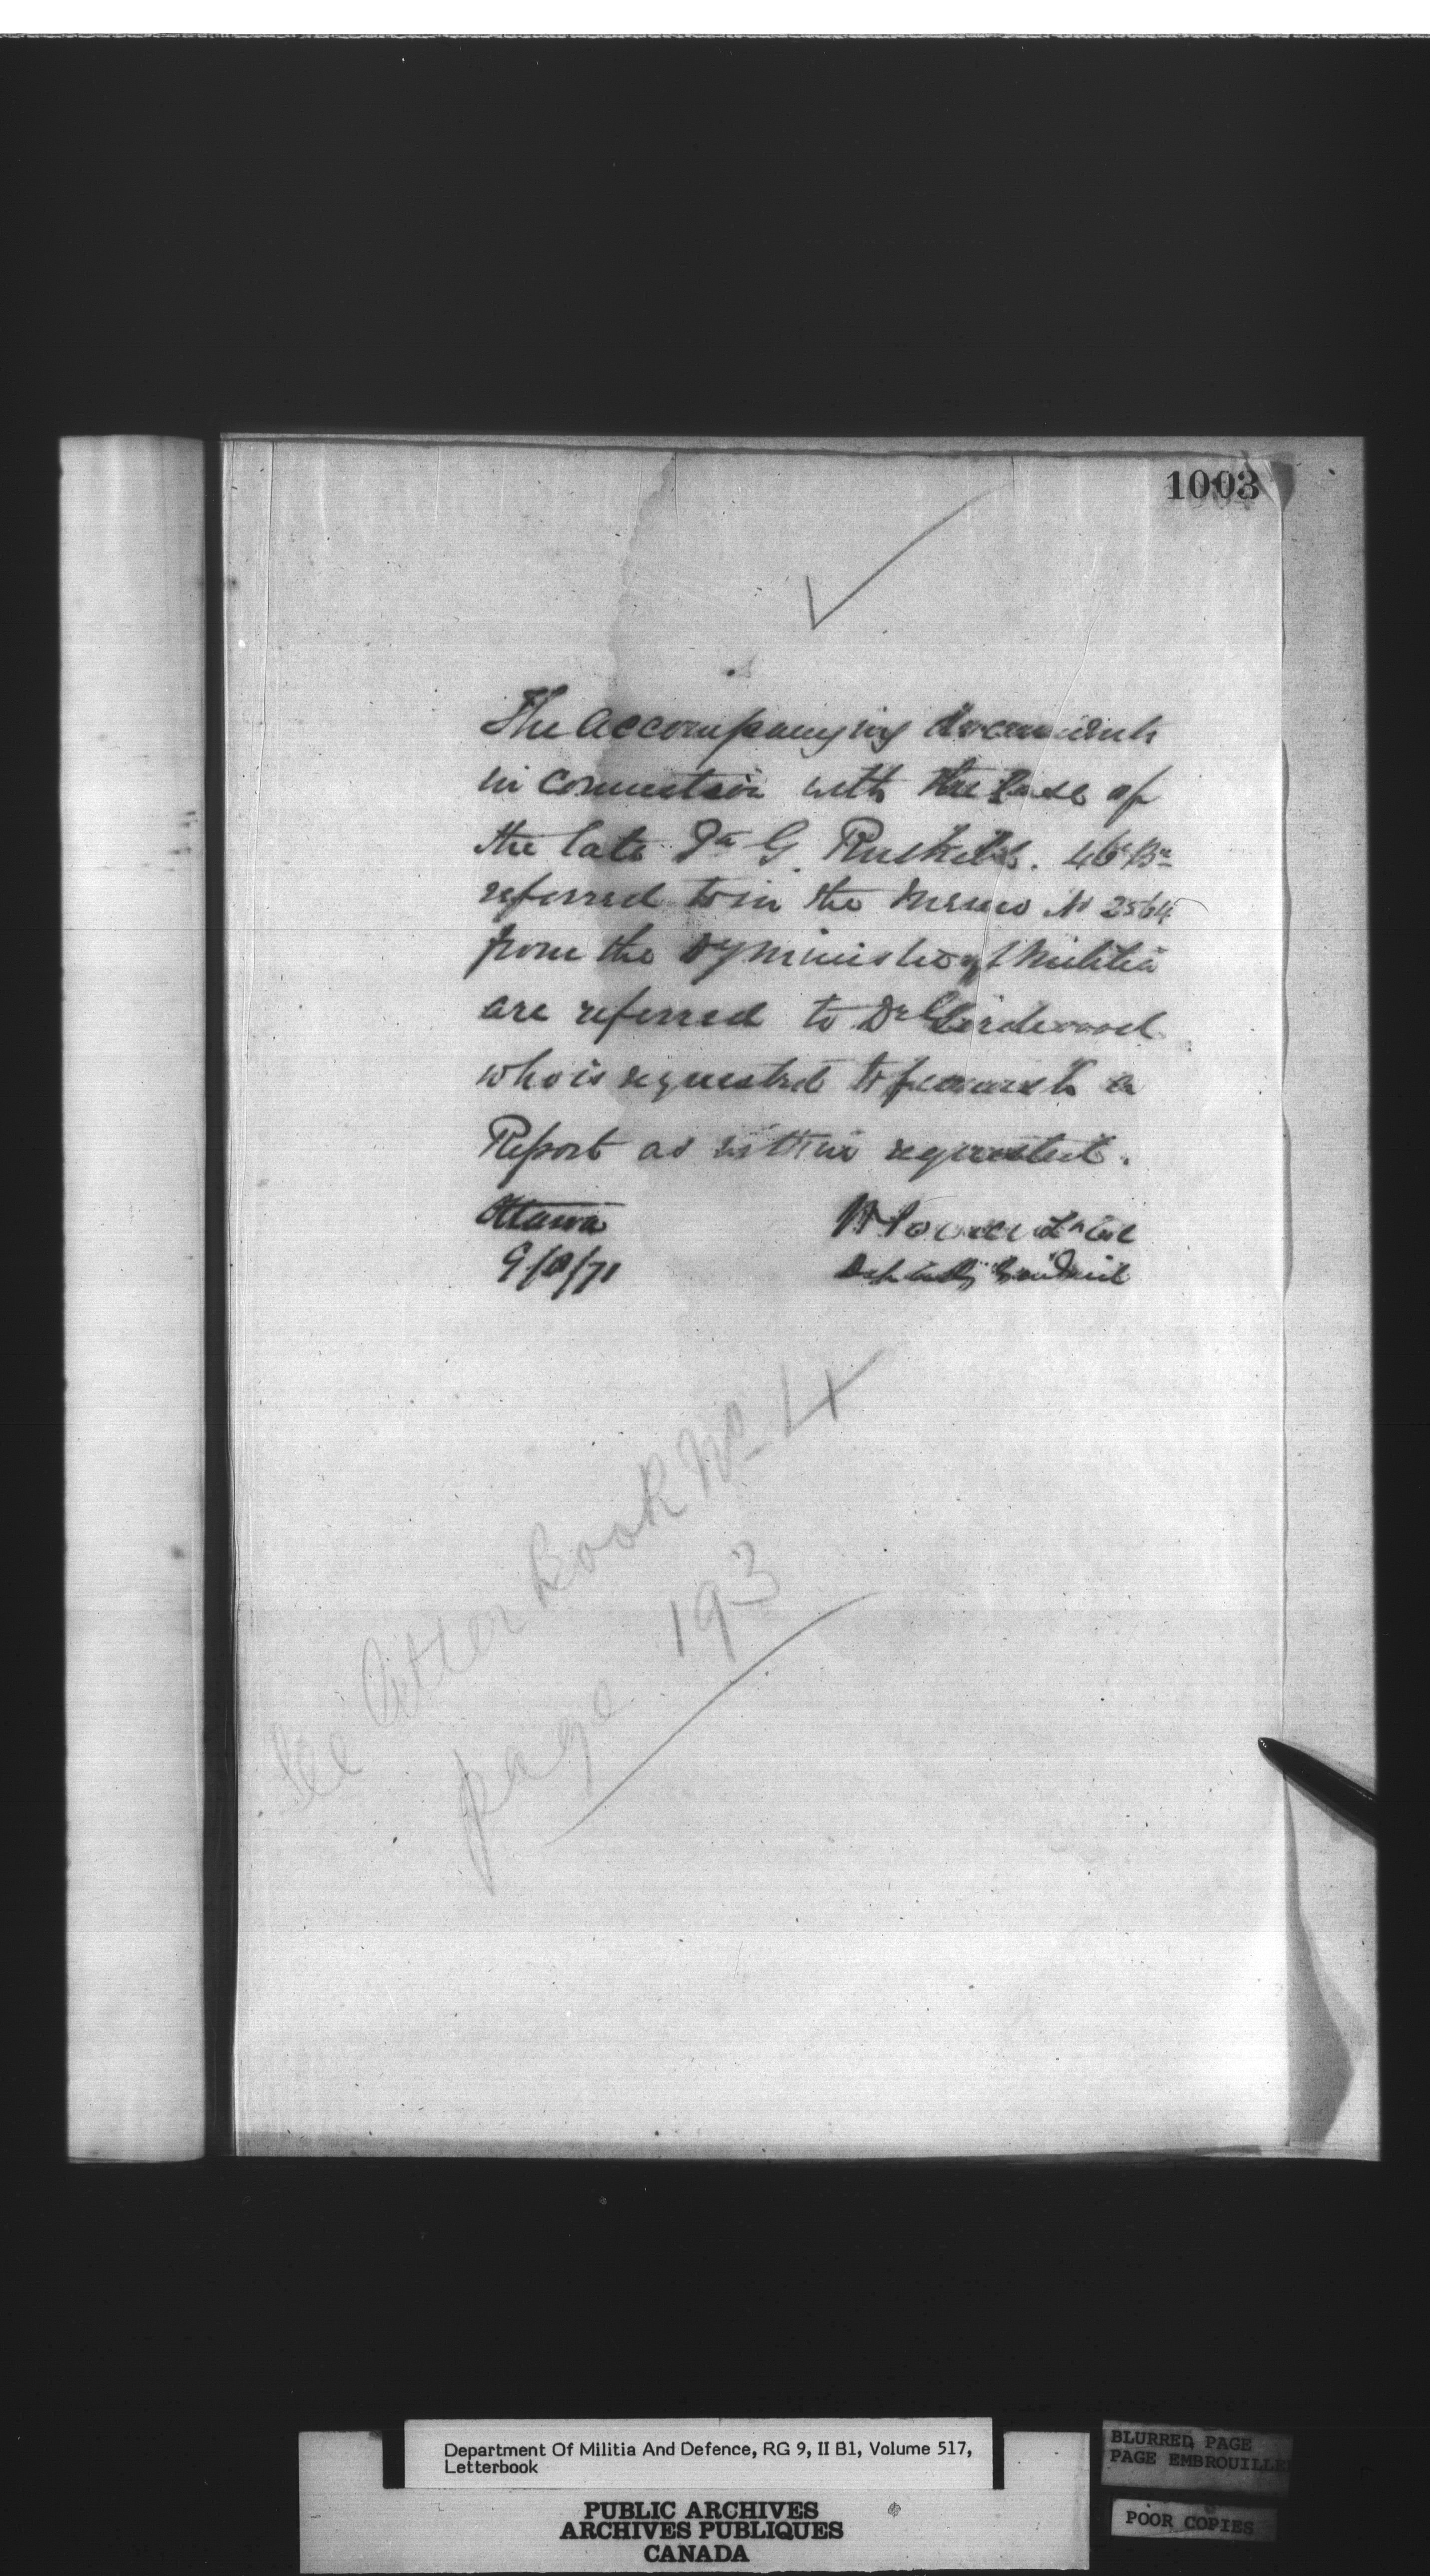 1003
The accompanying documents
in connection with the case of
the late G.
referred to in the Memo No 2564
from the Dy Minister of Militia
are referred to Dr Girdwood
who is requested to furnish a
Report as within requested.
Ottawa
9/ /71
Powell Lt Col
See Letter Book No 4
page 193
Department Of Militia And Defence, RG 9, II B1, Volume 517,
Letterbook
PUBLIC ARCHIVES
ARCHIVES PUBLIQUES
CANADA
BLURRED PAGE
PAGE EMBROUILLE
POOR COPIES